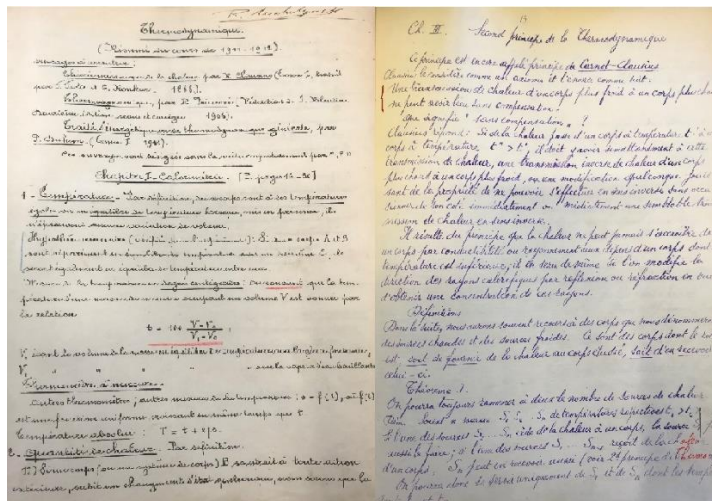 Thermodynamique.
(Résumé du cours de 1911-1912).
Ouvrages à consulter.
de la chaleur, par R. Clausius (Tome I, traduit
par F. Folie et E. Ronkar 1888).
Thermodynamique, par P.
Deuxième édition revue et corrigée 1908).
Traité d'énergétique ou de thermodynamique générale, par
P. Duhem. (Tome I 1911).
Ces ouvrages sont désignés dans la suite respectivement par
Chapitre I - Calorimétrie.
1 - Température - Par définition, deux corps sont à des températures
égales ou en équilibre de température lorsque, mis en présence, ils
n'éprouvent aucune variation de volume.
Hypothèse Si deux corps A et B
sont séparément en équilibre de température avec un troisième C, ils
sont également en équilibre de température entre eux.
Mesure de la température on convient que la tem-
pérature d'une masse de mercure occupant un volume V est donnée par
la relation
t = 100 (V - V₀)/(V₁ - V₀) ;
V₀ étant le volume de la même
V₁ " " " " de la vapeur d'eau bouillante
Thermomètre à mercure.
Autre thermomètre ; autre mesure de la température : θ = f(t), où f(t)
est une fonction uniforme, croissant en même temps que t.
Température absolue : T = t + 273.
2 - Quantité de chaleur - Par définition.
I) Si un corps (ou un système de corps) P, soustrait à toute action
extérieure, subit un changement d'état quelconque, nous dirons que la
Ch. III. Second principe de la Thermodynamique
Ce principe est encore appelé principe de Carnot-Clausius
Clausius le considère comme un axiome et l'énonce comme suit :
"Une transmission de chaleur d'un corps plus froid à un corps plus chaud
ne peut avoir lieu sans compensation."
Que signifie "sans compensation" ?
Clausius répond : Si de la chaleur passe d'un corps à température t' à un
corps à température t" > t', il doit y avoir simultanément à cette
transmission de chaleur, une transmission inverse de chaleur d'un corps
plus chaud à un corps plus froid, ou une modification quelconque jouis-
sant de la propriété de ne pouvoir s'effectuer en sens inverse sans occa-
sionner de son côté immédiatement ou médiatement une semblable trans-
mission de chaleur en sens inverse.
Il résulte du principe que la chaleur ne peut jamais s'accroître dans
un corps par conductibilité ou rayonnement aux dépens d'un corps dont
température est inférieure ; il en sera de même si l'on modifie la
direction des rayons calorifiques par réflexion ou réfraction en vue
d'obtenir une concentration de ces rayons.
Définitions
Dans la suite, nous aurons souvent recours à des corps que nous dénommerons
des sources chaudes et des sources froides. Ce sont des corps dont le rôle
est soit de fournir de la chaleur au corps étudié, soit d'en recevoir
celui-ci.
Théorème 1.
On pourra toujours ramener à deux le nombre de sources de chaleur
Si l'une des sources cède de la chaleur à un corps, la source
aussi le faire ; si l'une des sources reçoit de la chaleur
d'un corps, peut en recevoir aussi (voir 2d principe de Clausius)
On pourra donc se servir uniquement de S₁ et de Sₙ dont les tempé-